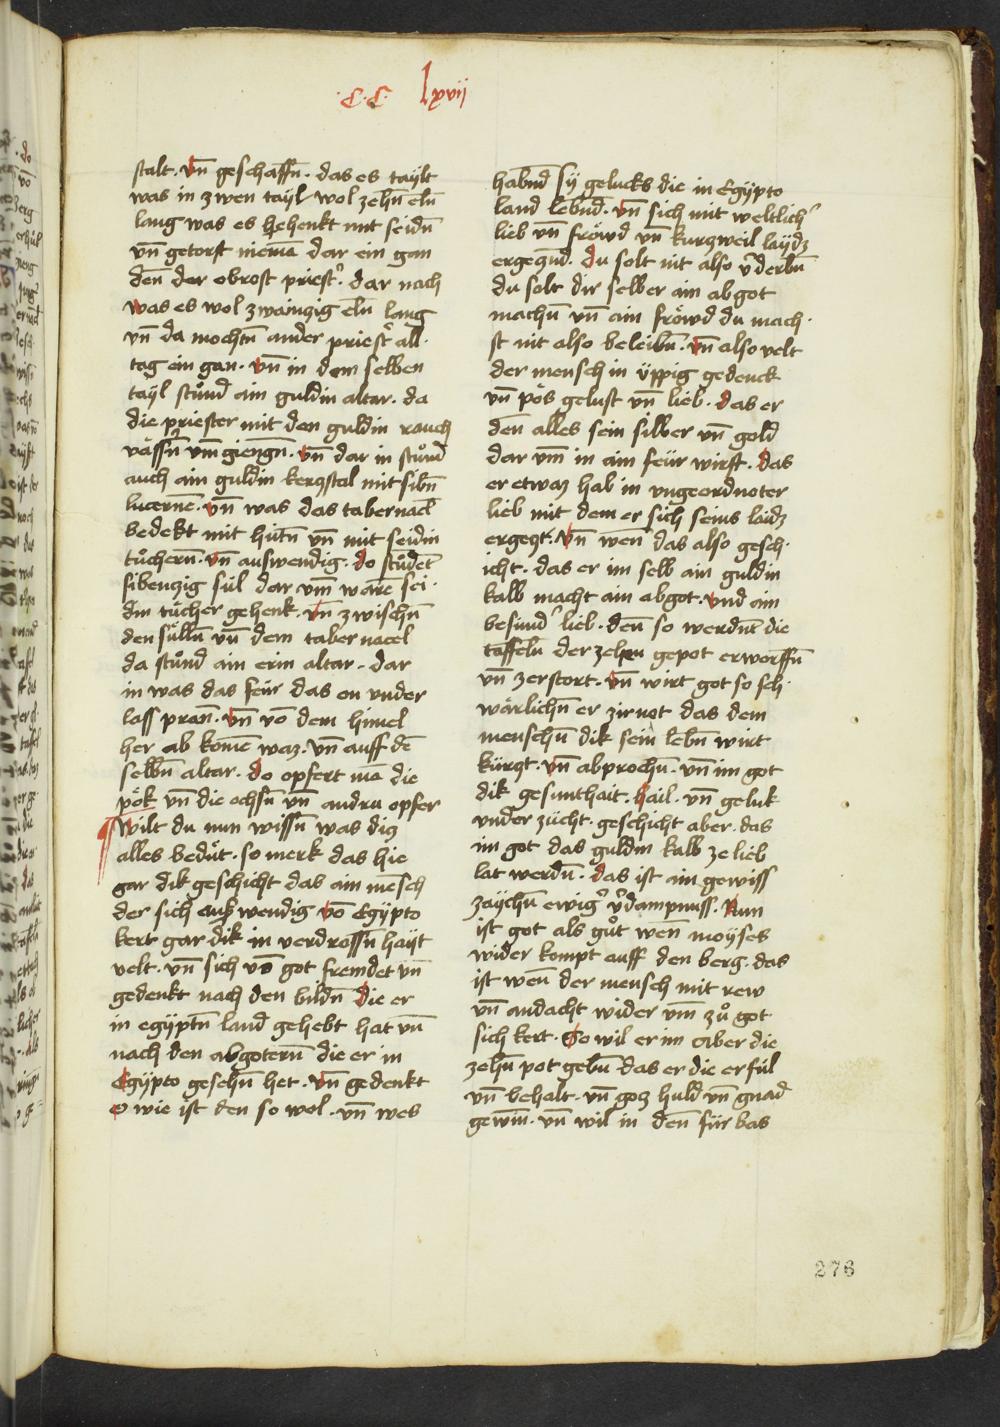 .C.C. lxvii
stalt. vn̄ geschaffn̄. das es taylt
was in zwen tayl wol zehn̄ eln̄
lang was es hehenkt mit seidn̄
vn̄ getorst niemā dar ein gan
den̄ der obrost priestˀ. dar nach
was es wol zwainzig eln̄ lang
vn̄ da mochtn̄ ander priestˀ all
tag ein gan. vn̄ in dem selben
tayl stůnd ain guldin altar. da
die priester mit den guldin rauch
vässn̄ vm̄ giengn̄. vn̄ dar in stůnd
auch ain guldin kerqstal mit sibn̄
lucernē. vn̄ was das tabernacl̄
bedekt mit hütn̄ vn̄ mit seidin
tůchern̄. vn̄ auswendig. do stůdet̄
sibenzig sül dar vm̄ ware sei
din tücher gehenk. vn̄ zwischn̄
den sülln̄ vn̄ dem tabernacel
da stůnd ain erin altar. dar
in was das feür das on vnder
lass pran̄. vn̄ vō dem himel
her ab komē waz. vn̄ auff dē
selbn̄ altar. do opfert mā die
pök vn̄ die ochsn̄ vn̄ andru opfer
wilt du nun wissn̄ was diz
alles bedüt. so merk das hie
gar dik geschicht das ain mēsch
der sich auswendig vō Egÿpto
kert gar dik in verdrossn̄ hayt
velt. vn̄ sich vō got fremdet vn̄
gedenkt nach den bildn̄ die er
in egÿptn̄ land gehebt hat vn̄
nach den abgotern̄ die er in
Egÿpto gesehn̄ het. vn̄ gedenkt
o wie ist den so wol. vn̄ wes
habnd sÿ gelucks die in Egÿpto
land lebnd. vn̄ sich mit weltlichˀ
lieb vn̄ fröwd vn̄ kurqweil laÿdz
ergeqnd. du solt nit also v̂derbn̄
du solt dir selber ain abgot
machn̄ vn̄ ain fröwd du mach
st nit also beleibn̄. vn̄ also velt
der mensch in üppig gedenck
vn̄ pös gelust vn̄ lieb. das er
den̄ alles sein silber vn̄ gold
dar vm̄ in ain feür wirft. das
er etwaz hab in vngeordnoter
lieb mit dem er sich seins laidz
ergeqt. vn̄ wen̄ das also gesch
icht. das er im selb ain guldin
kalb macht ain abgot. vnd ain
besundˀ lieb. den̄ so werdn̄t die
taffeln̄ der zehen gepot erworffn̄
vn̄ zerstort. vn̄ wirt got so sch
wärlichn̄ er zirnot das dem
menschn̄ dik sein lebn̄ wirt
kürqt. vn̄ abprochn̄ vn̄ im got
dik gesunthait. hail. vn̄ geluk
vnder zücht. geschicht aber. das
im got das guldin kalb ze lieb
lat werdn̄. das ist ain gewiss
zaychn̄ ewigˀ v̂dampnuss. Nun
ist got als gůt wen̄ moÿses
wider kompt auff den berg. das
ist wen̄ der mensch mit rew
vn̄ andacht wider vm̄ zů got
sich kert. So wil er im aber die
zehn̄ pot gebn̄ das er die erfül
vn̄ behalt. vn̄ goz huld vn̄ gnad
gewin̄. vn̄ wil in den̄ für bas
276